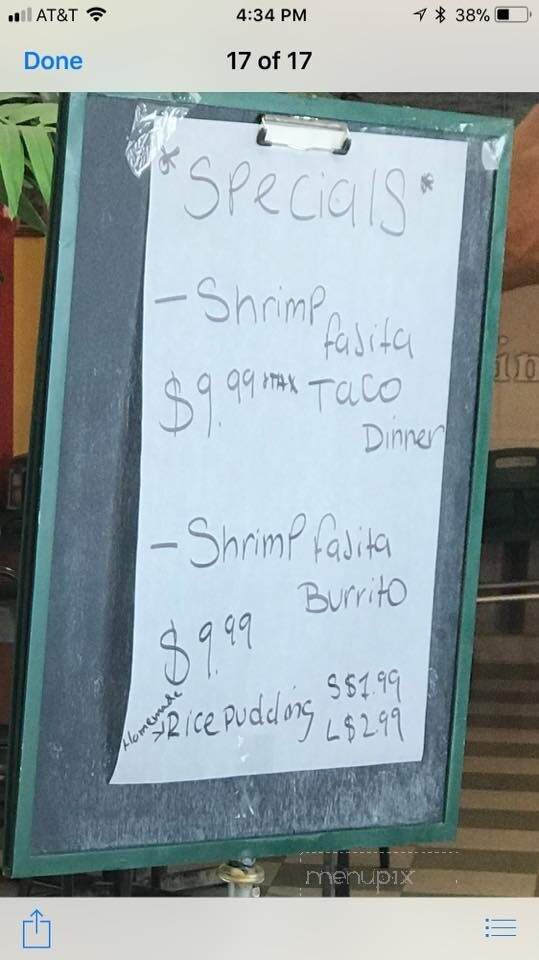 AT&T 4:34 PM 38%
Done 17 of 17
*Specials*
- Shrimp
fajita
$9.99 +TAX Taco
Dinner
- Shrimp fajita
Burrito
$9.99
Homemade
Rice pudding S $1.99
L $2.99
menupix